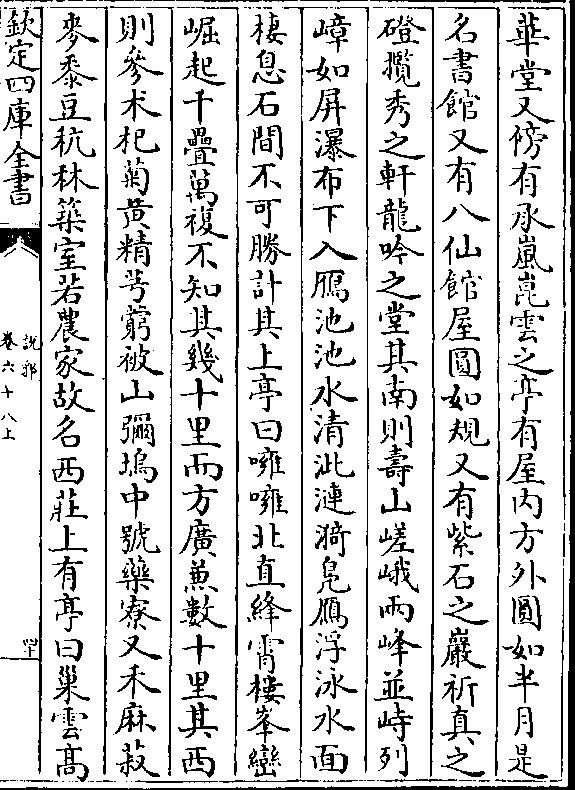 蕐堂又傍有承嵐崑雲之亭有屋内方外圓如半月是
名書館又有八仙館屋圓如規又有紫石之巖祈真之
磴攬秀之軒龍吟之堂其南則壽山嵯峨兩峰並峙列
嶂如屏瀑布下入鴈池池水清泚漣漪鳬鴈浮泳水面
棲息石間不可勝計其上亭曰噰噰北直絳霄樓峯巒
崛起千疊萬複不知其幾十里而方廣兼數十里其西
則參术杞菊黄精芎藭被山彌塢中號藥寮又禾麻菽
麥黍豆秔秫築室若農家故名西莊上有亭曰巢雲高
欽定四庫全書
說郛
卷六十八上